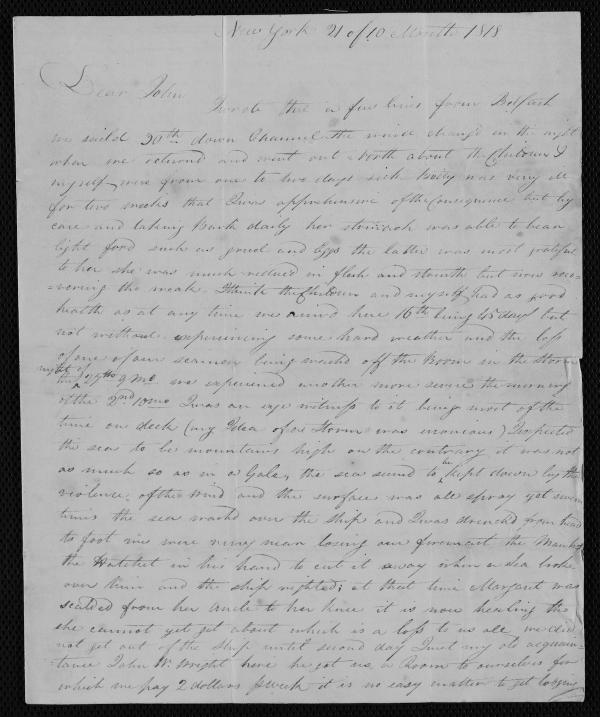 New York 21 of 10 Month 1818
Dear John
I wrote thee a few lines from Belfast
we saild 30th down Channel the winds changd in the night
when we returnd and went out North about the Children &
myself were from one to two days sick Betty was very ill
for two weeks that I was apprehensive of the Consequence but by
care and taking Bark daily her stomach was able to bear
light food such as gruel and Eggs the latter was most grateful
to her she was much reduced in flesh and strenth but now reco-
=vering tho weak. I think the Children and myself had as good
health as at any time we arrivd here 16th being 45 days but
not without experiencing some hard weather and the loss
of one of our seamen being washd off the Boom in the storm
night of
the 27th 9 mo we experiencd another more severe the morning
of the 2nd 10 mo I was an eye witness to it being most of the
time on deck (my Idea of a Storm was eronious) I expected
the sea to be mountains high on the contrary it was not
as much so as in a Gale, the sea seemd to be kept down by the
violence of the wind and the surface was all spray yet severl
times the sea washd over the ship and I was drenchd from head
to foot we were very near losing our foremast the Man had
the Hatchet in his hand to cut it away when a sea broke
over him and the ship righted; at that time Margaret was
scalded from her ancle to her knee it is now healing tho
she cannot yet get about which is a loss to us all we did
not get out of the ship until second day I met my old acquain-
tance John W. Wright here he got us a Room to ourselves for
which we pay 2 dollars p week it is no easy matter to get lodging